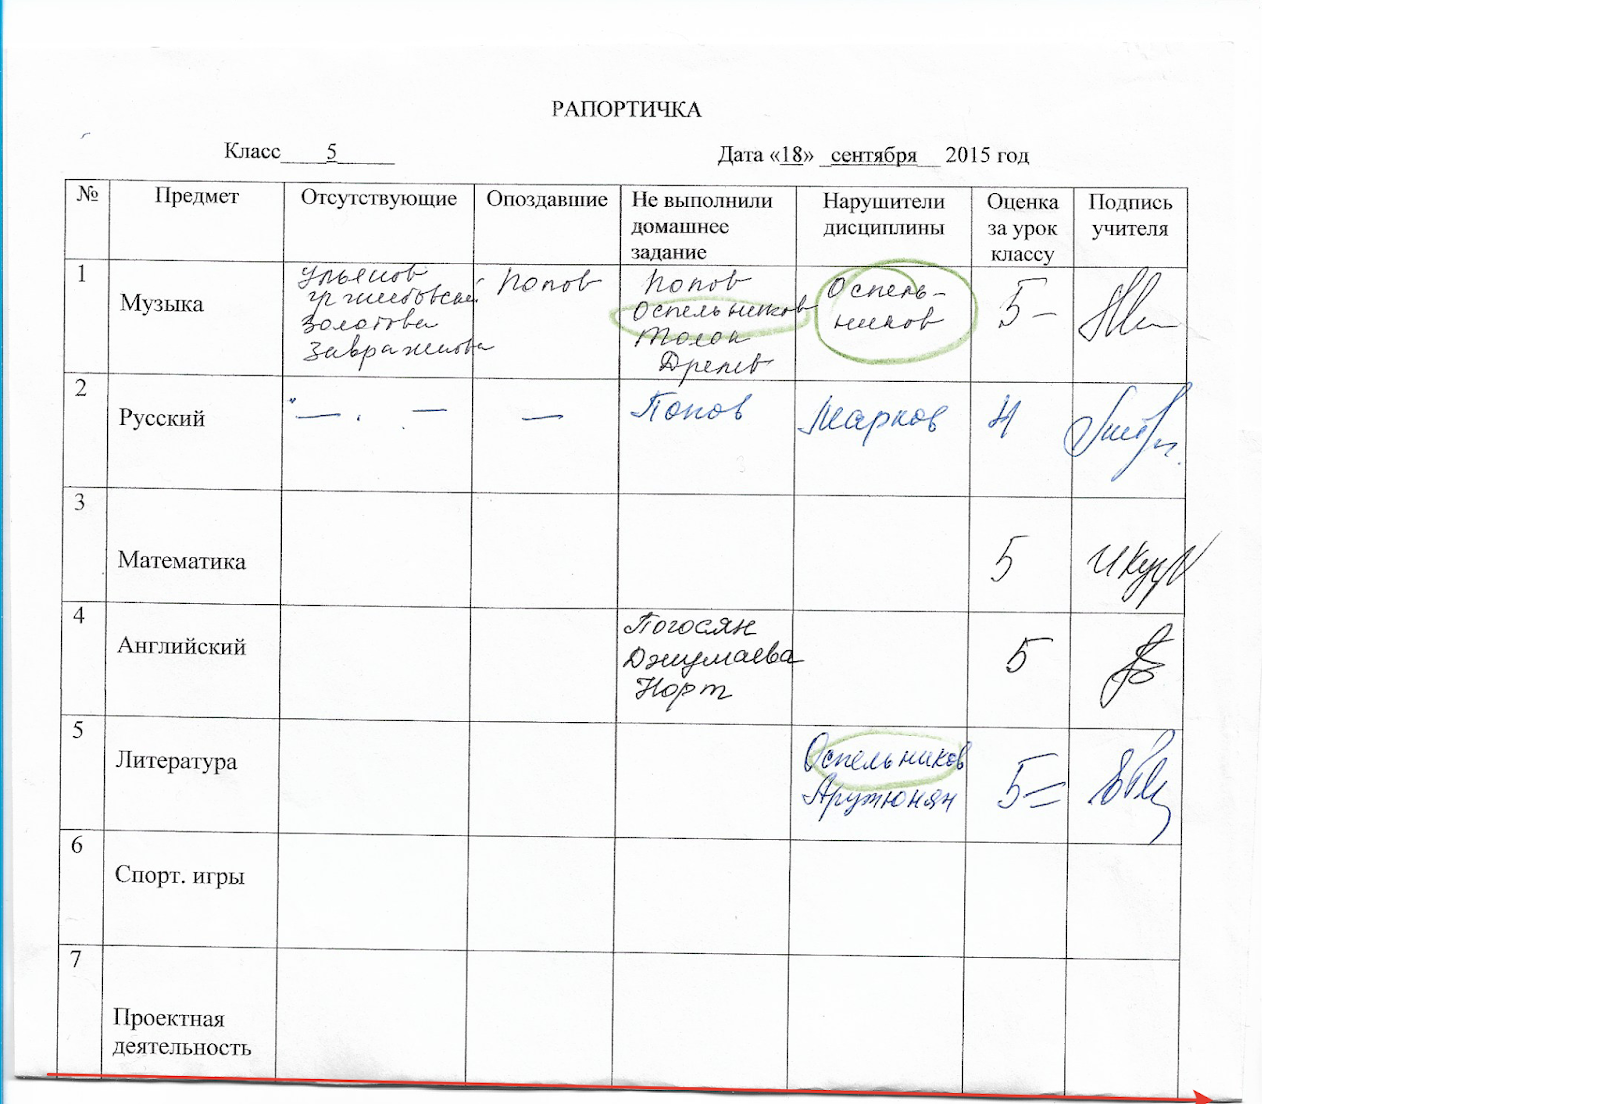 РАПОРТИЧКА
Класс____5_____ Дата «18» _сентября__ 2015 год
№ Предмет Отсутствующие Опоздавшие Не выполнили домашнее задание Нарушители дисциплины Оценка за урок классу Подпись учителя
1 Музыка
Ульянов
Гржигловский
Золотова
Завражнова
Попов
Попов
Оспельников
Молок
Оспель-
ников
5-
2 Русский
" — . — — Попов Марков 4
3 Математика 5
4 Английский
Погосян
Джумаева
Норт
5
5 Литература
Оспельников
Арутюнян
5=
6 Спорт. игры
7 Проектная
деятельность